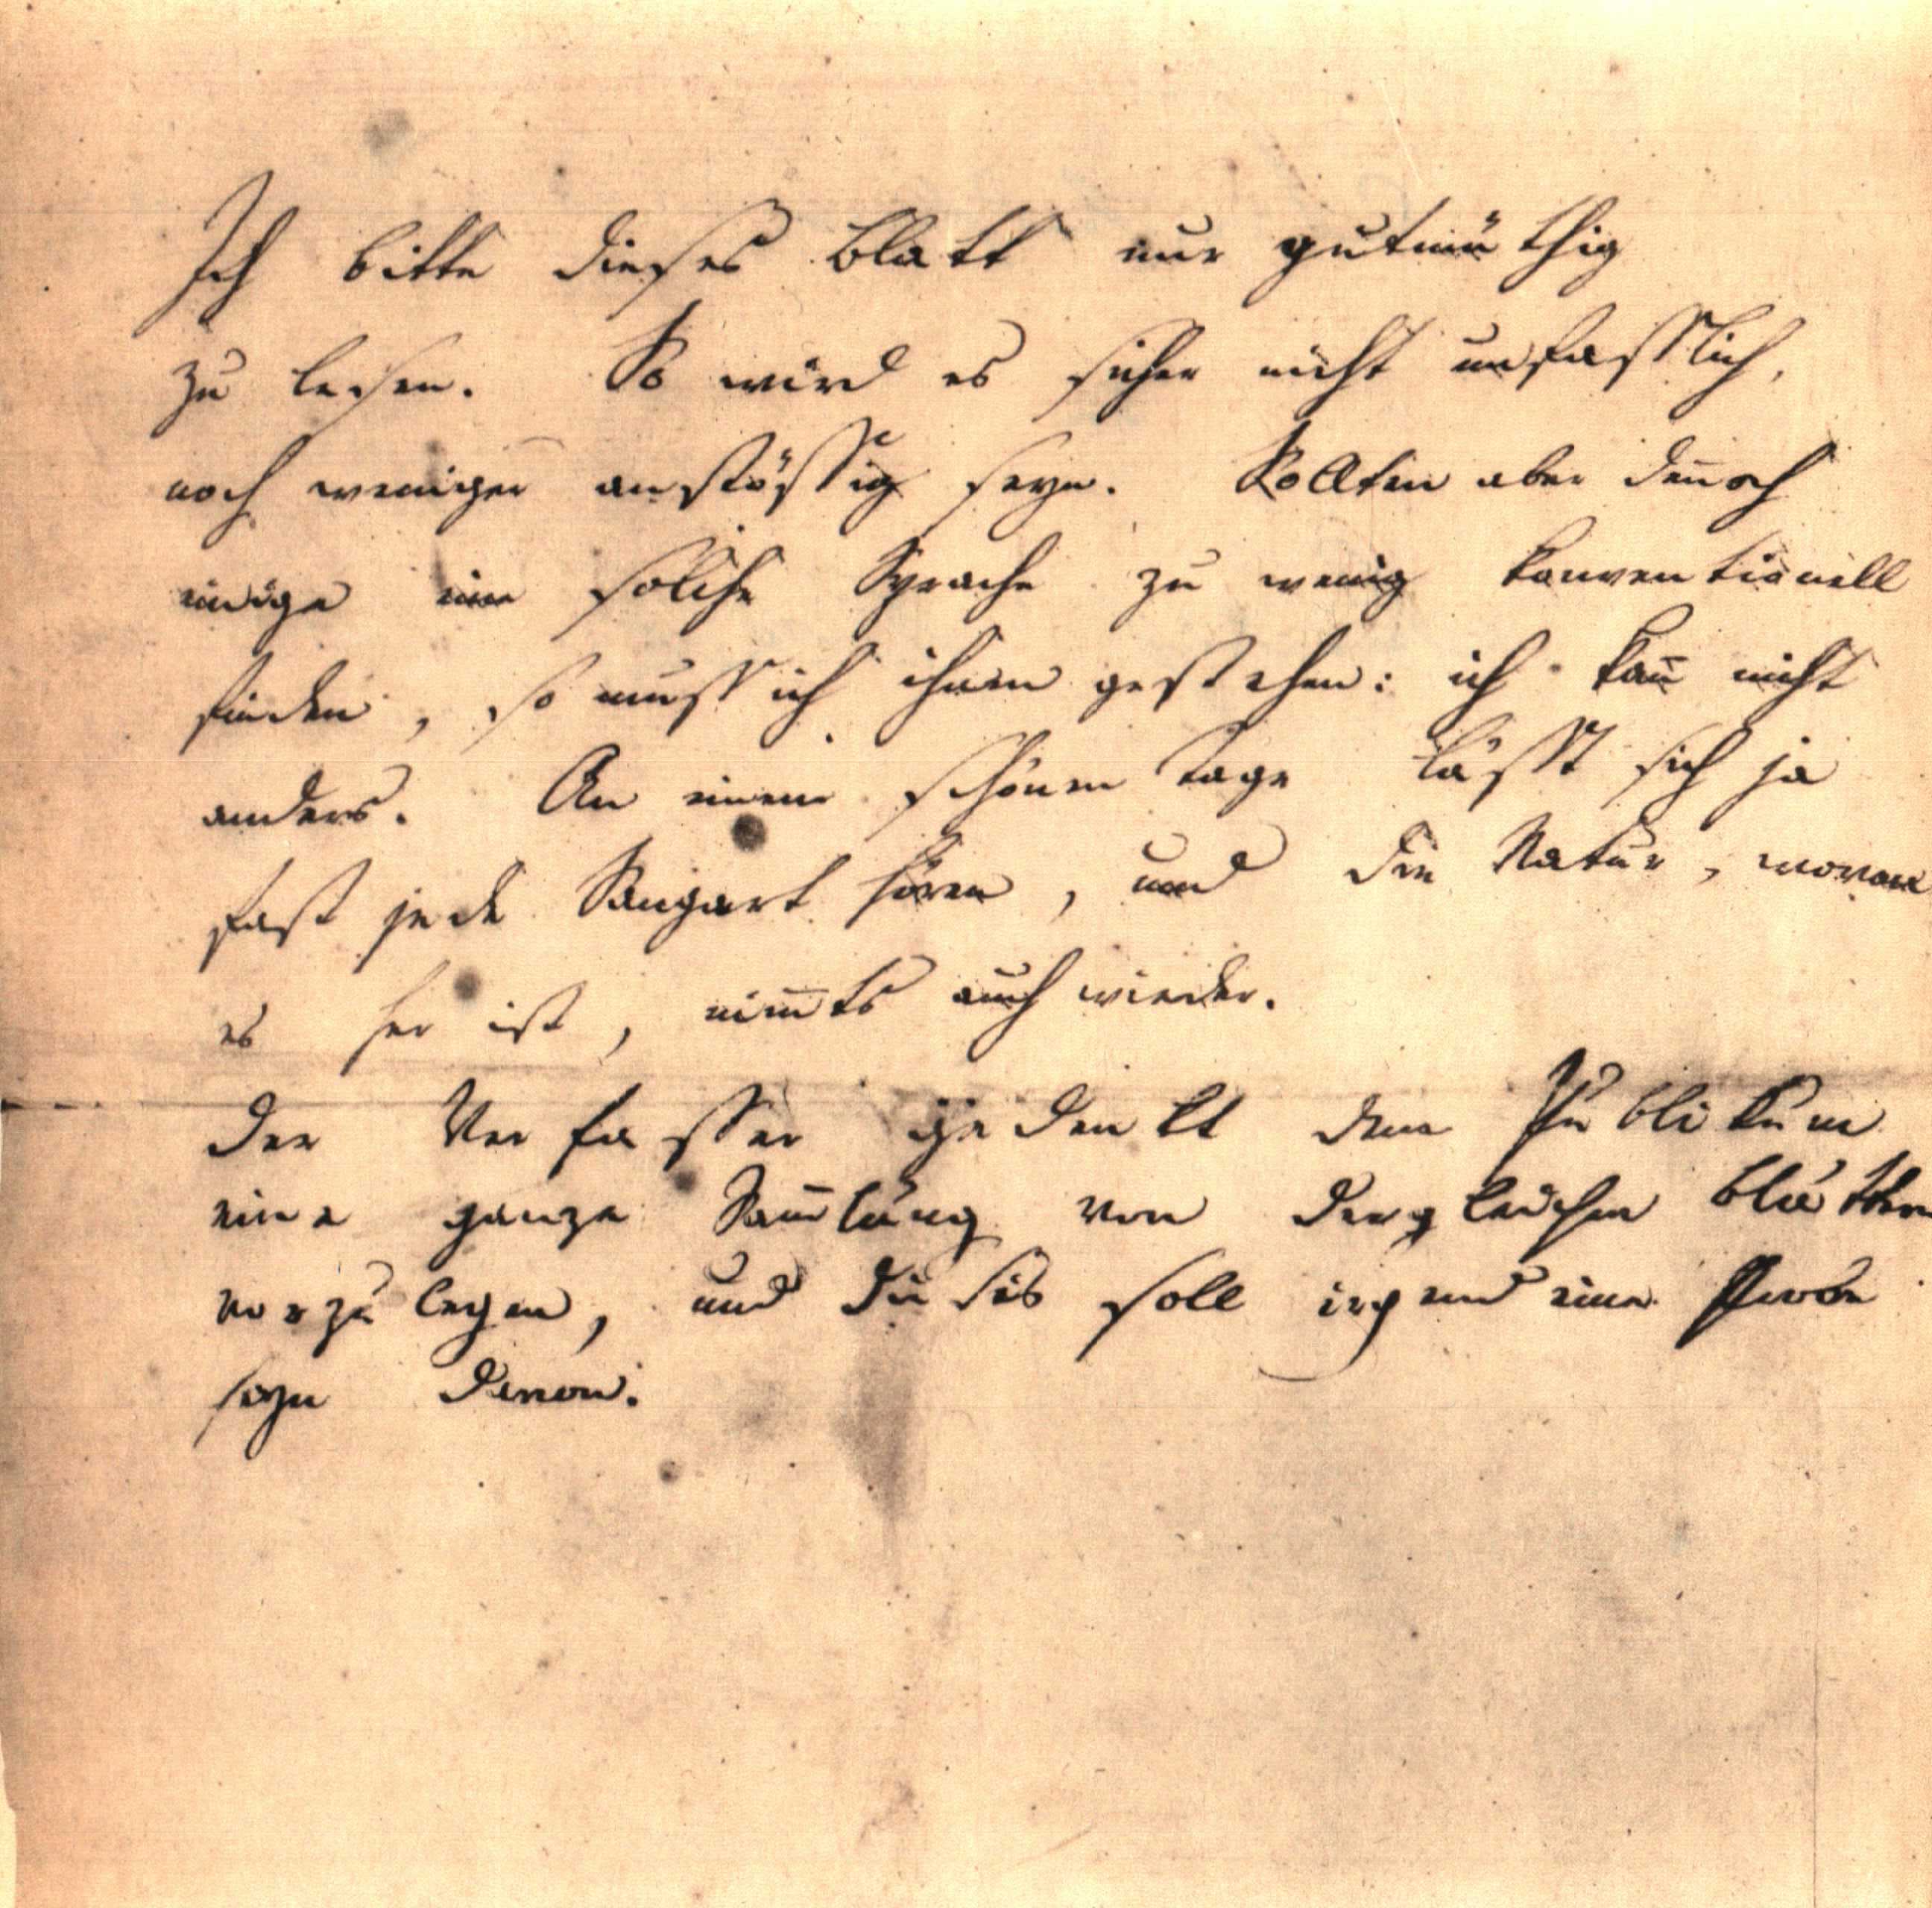 Ich bitte dieses Blatt nur gutmüthig
zu lesen. So wird es sicher nicht unfasslich,
noch weniger anstössig seyn. Sollten aber deñoch
einige eine solche Sprache zu wenig konventionell
finden, so muss ich ihnen gestehen: ich kañ nicht
anders. An einem schönen Tage lässt sich ja
fast jede Sangart hören, und die Natur, wovon
es her ist, nim̄ts auch wieder.
Der Verfasser gedenkt dem Publikum
eine ganze Sam̄lung von dergleichen Blättern
vorzulegen, und dieses soll irgend eine Probe
seyn davon.